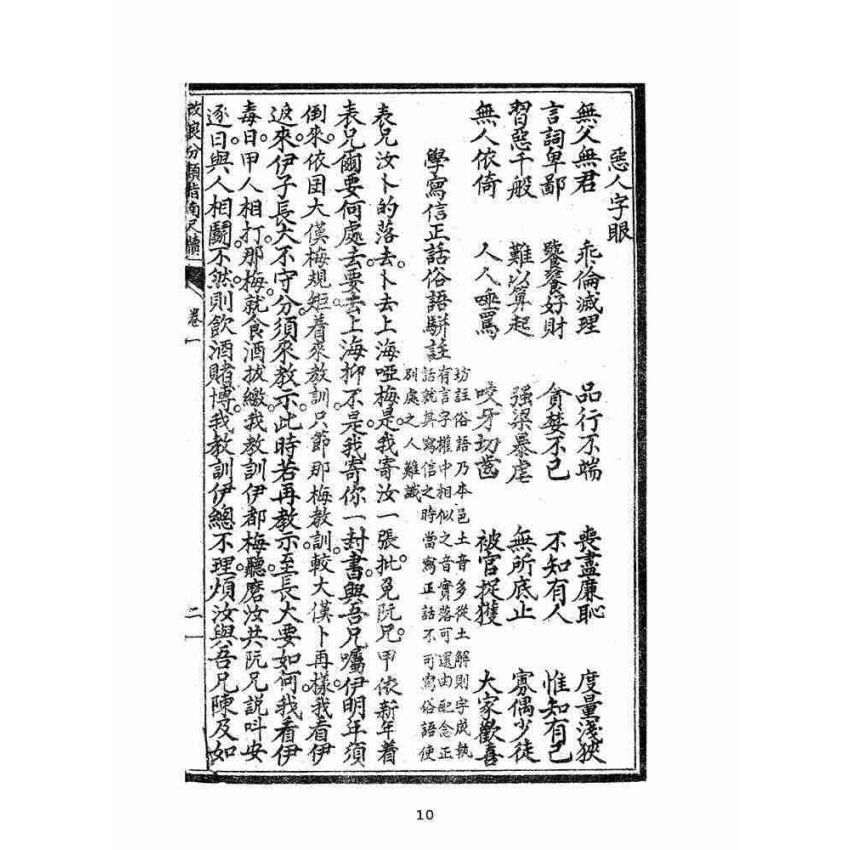 惡人字眼
無父無君 乖倫滅理 品行不端 喪盡廉恥 度量淺狹
言詞卑鄙 饕餮好財 貪婪不已 不知有人 惟知有己
習惡千般 難以算起 强梁暴虐 無所底止 寡偶少徒
無人依倚 人人唾罵 咬牙切齒 被官捉獲 大家歡喜
學寫信正話俗語駢註
坊註俗語乃本邑土音多從土解則字成執
有言字權中相似之音實落可還由配念正
話就其寫信之時當寫正話不可寫俗語使
別處之人難識
表兄汝卜的落去。卜去上海啞梅是。我寄汝一張批兔阮兄。甲依新年着
表兄爾要何處去。要去上海抑不是。我寄你一封書。與吾兄囑伊明年須
倒來。依囝大漢梅規矩着來教訓只節那梅教訓。較大漢卜再樣。我看伊
返來。伊子長大不守分。須來教示。此時若再教示至長大要如何。我看伊
每日甲人相打。那梅就食酒拔繳。我教訓伊都梅聽。磨汝共阮兄説叫安
逐日與人相鬪。不然則飲酒賭博。我教訓伊總不理。煩汝與吾兄陳及如
改良分類指南尺牘 卷一 二
10